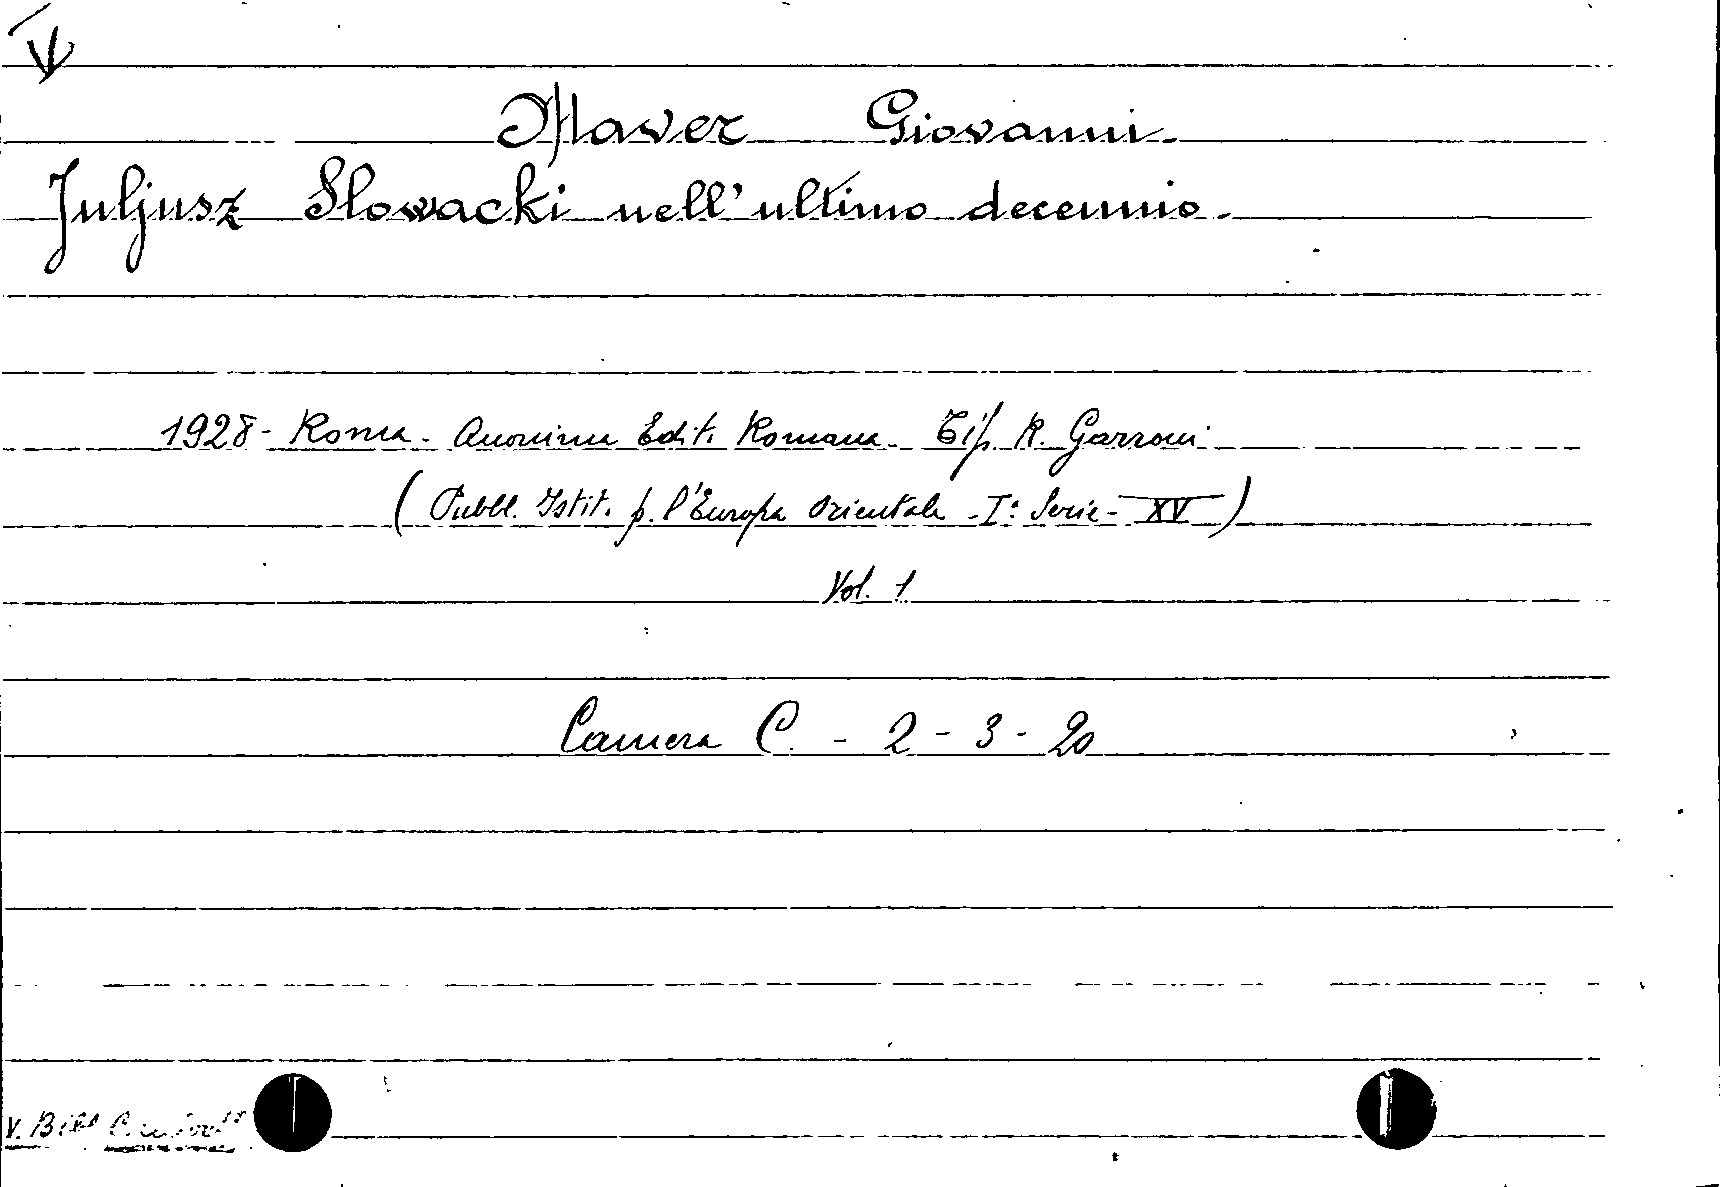 Maver Giovanni.
Juljusz Slowacki nell'ultimo decennio.
1928 - Roma - Anonima Edit. Romana - Tip. R. Garroni
(Pubbl. Istit. p. l'Europa Orientale - Iª Serie - XV)
Vol. 1
Camera C. - 2 - 3 - 20
V. Bibl